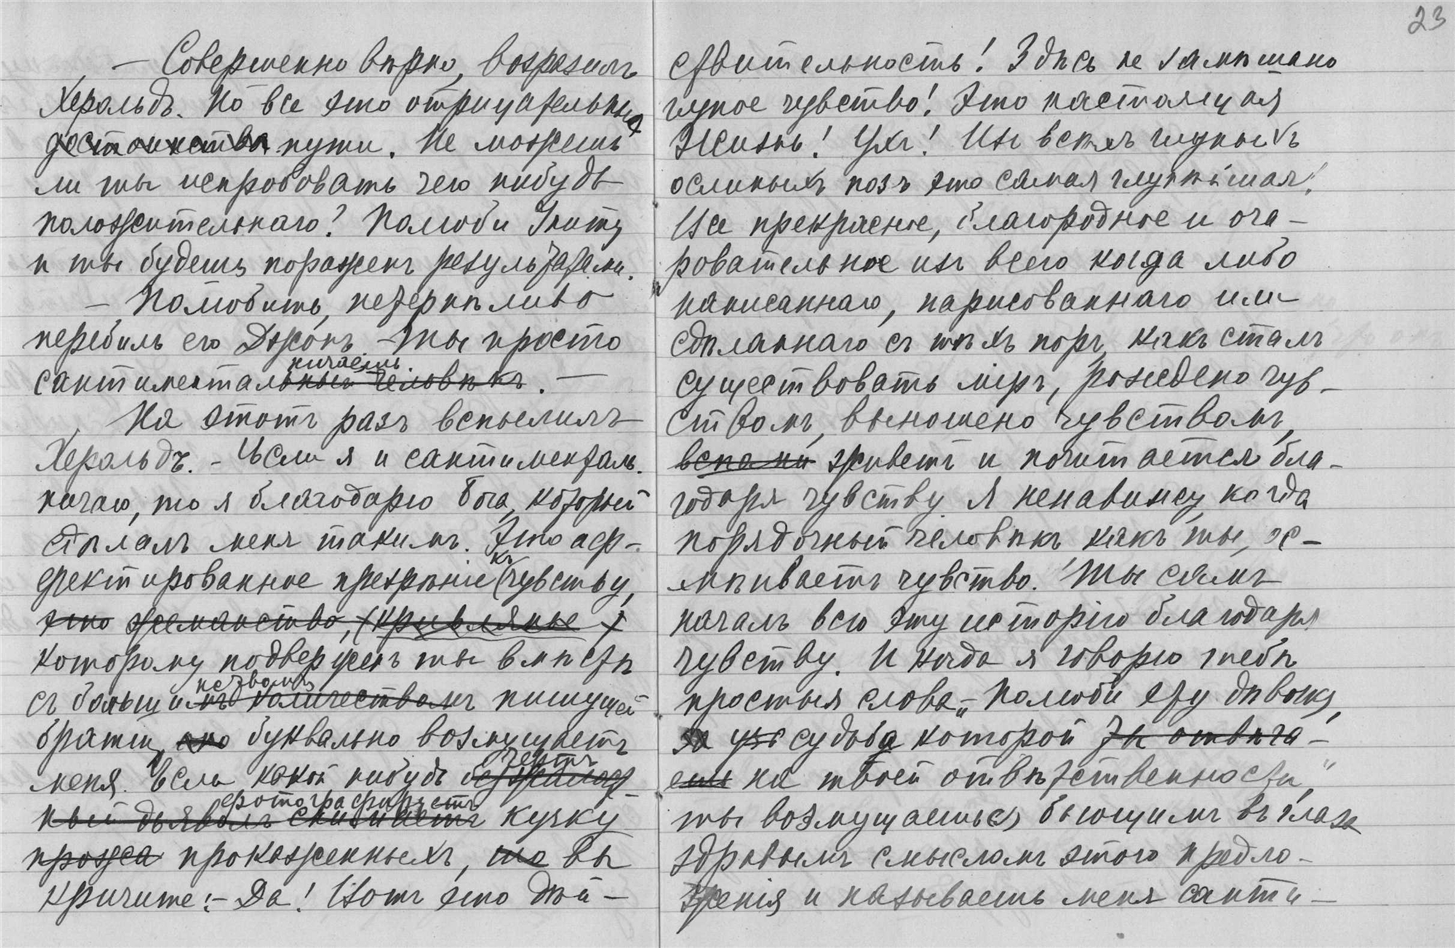 — Совершенно вѣрно, возразилъ
Херальдъ. Но все это отрицательные
достоинства пути. Не можешь
ли ты испробовать чего нибудь
положительнаго? Полюби Аниту
и ты будешь пораженъ результатами.
— Полюбить, нетерпѣливо
перебилъ его Джонъ — ты просто
ничаешь.
сантиментальный человѣкъ. —
На этотъ разъ вспылилъ
Херальдъ. — Если я и сантименталь-
ничаю, то я благодарю Бога, который
сдѣлалъ меня такимъ. Это аф-
фектированное презрѣніе къ чувству,
это жеманство, (кривлянье)
которому подверженъ ты вмѣстѣ
съ большинствомъ количествомъ пишущей
братіи, оно буквально возмущаетъ
меня. Если какой нибудь
чортъ
фотографируетъ
ный дьяволъ снимаетъ кучку
прока прокаженныхъ, то вы
кричите: — Да! Вотъ это дѣй-
23
ствительность! Здѣсь не замѣшано
глупое чувство! Это настоящая
жизнь! Ухъ! Изъ всѣхъ глупыхъ
ослиныхъ позъ это самая глупѣйшая!
Все прекрасное, благородное и оча-
ровательное изъ всего когда либо
написаннаго, нарисованнаго или
сдѣланнаго съ тѣхъ поръ, какъ сталъ
существовать міръ, рождено чув-
ствомъ, выношено чувствомъ,
живетъ и почитается бла-
годаря чувству. Я ненавижу, когда
порядочный человѣкъ какъ ты, ос-
мѣиваетъ чувство. Ты самъ
началъ всю эту исторію благодаря
чувству. И когда я говорю тебѣ
простыя слова — „Полюби эту дѣвочку,
за уже судьба которой ты отвѣча-
ешь на твоей отвѣтственности,"
ты возмущаешься бьющимъ въ глаза
здравымъ смысломъ этого предло-
женія и называешь меня санти-